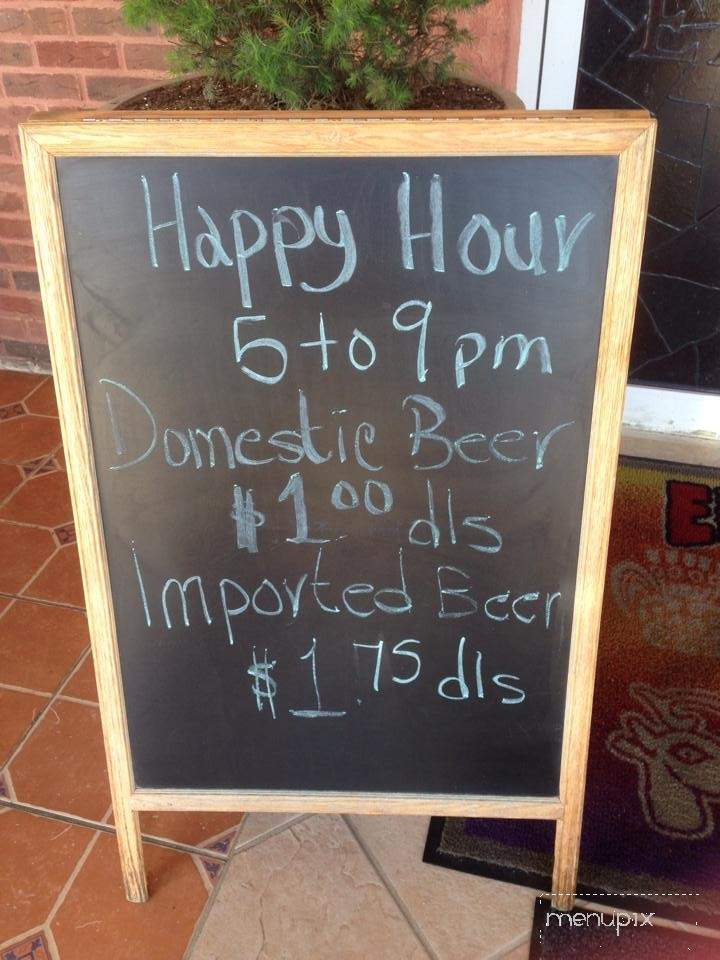 Happy Hour
5 to 9 pm
Domestic Beer
$1.00 dls
Imported Beer
$1.75 dls
menupix